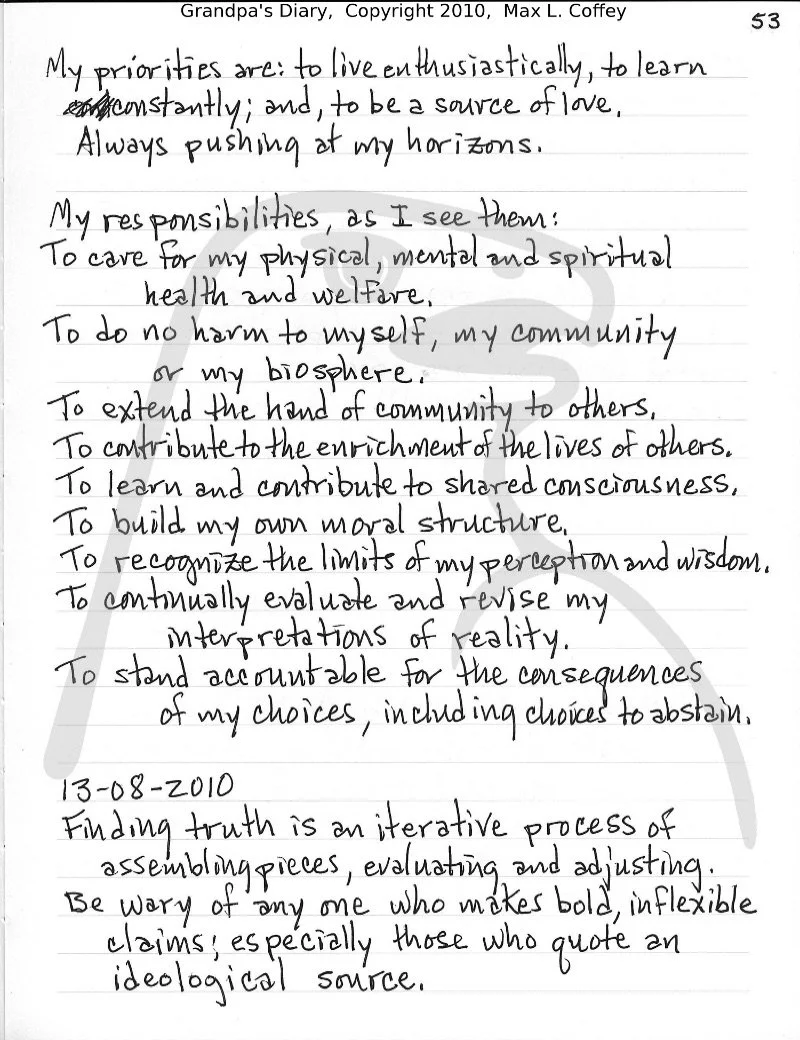 Grandpa's Diary, Copyright 2010, Max L. Coffey
53
My priorities are: to live enthusiastically, to learn
constantly; and, to be a source of love.
Always pushing at my horizons.
My responsibilities, as I see them:
To care for my physical, mental and spiritual
health and welfare.
To do no harm to myself, my community
or my biosphere.
To extend the hand of community to others.
To contribute to the enrichment of the lives of others.
To learn and contribute to shared consciousness.
To build my own moral structure.
To recognize the limits of my perception and wisdom.
To continually evaluate and revise my
interpretations of reality.
To stand accountable for the consequences
of my choices, including choices to abstain.
13-08-2010
Finding truth is an iterative process of
assembling pieces, evaluating and adjusting.
Be wary of any one who makes bold, inflexible
claims; especially those who quote an
ideological source.